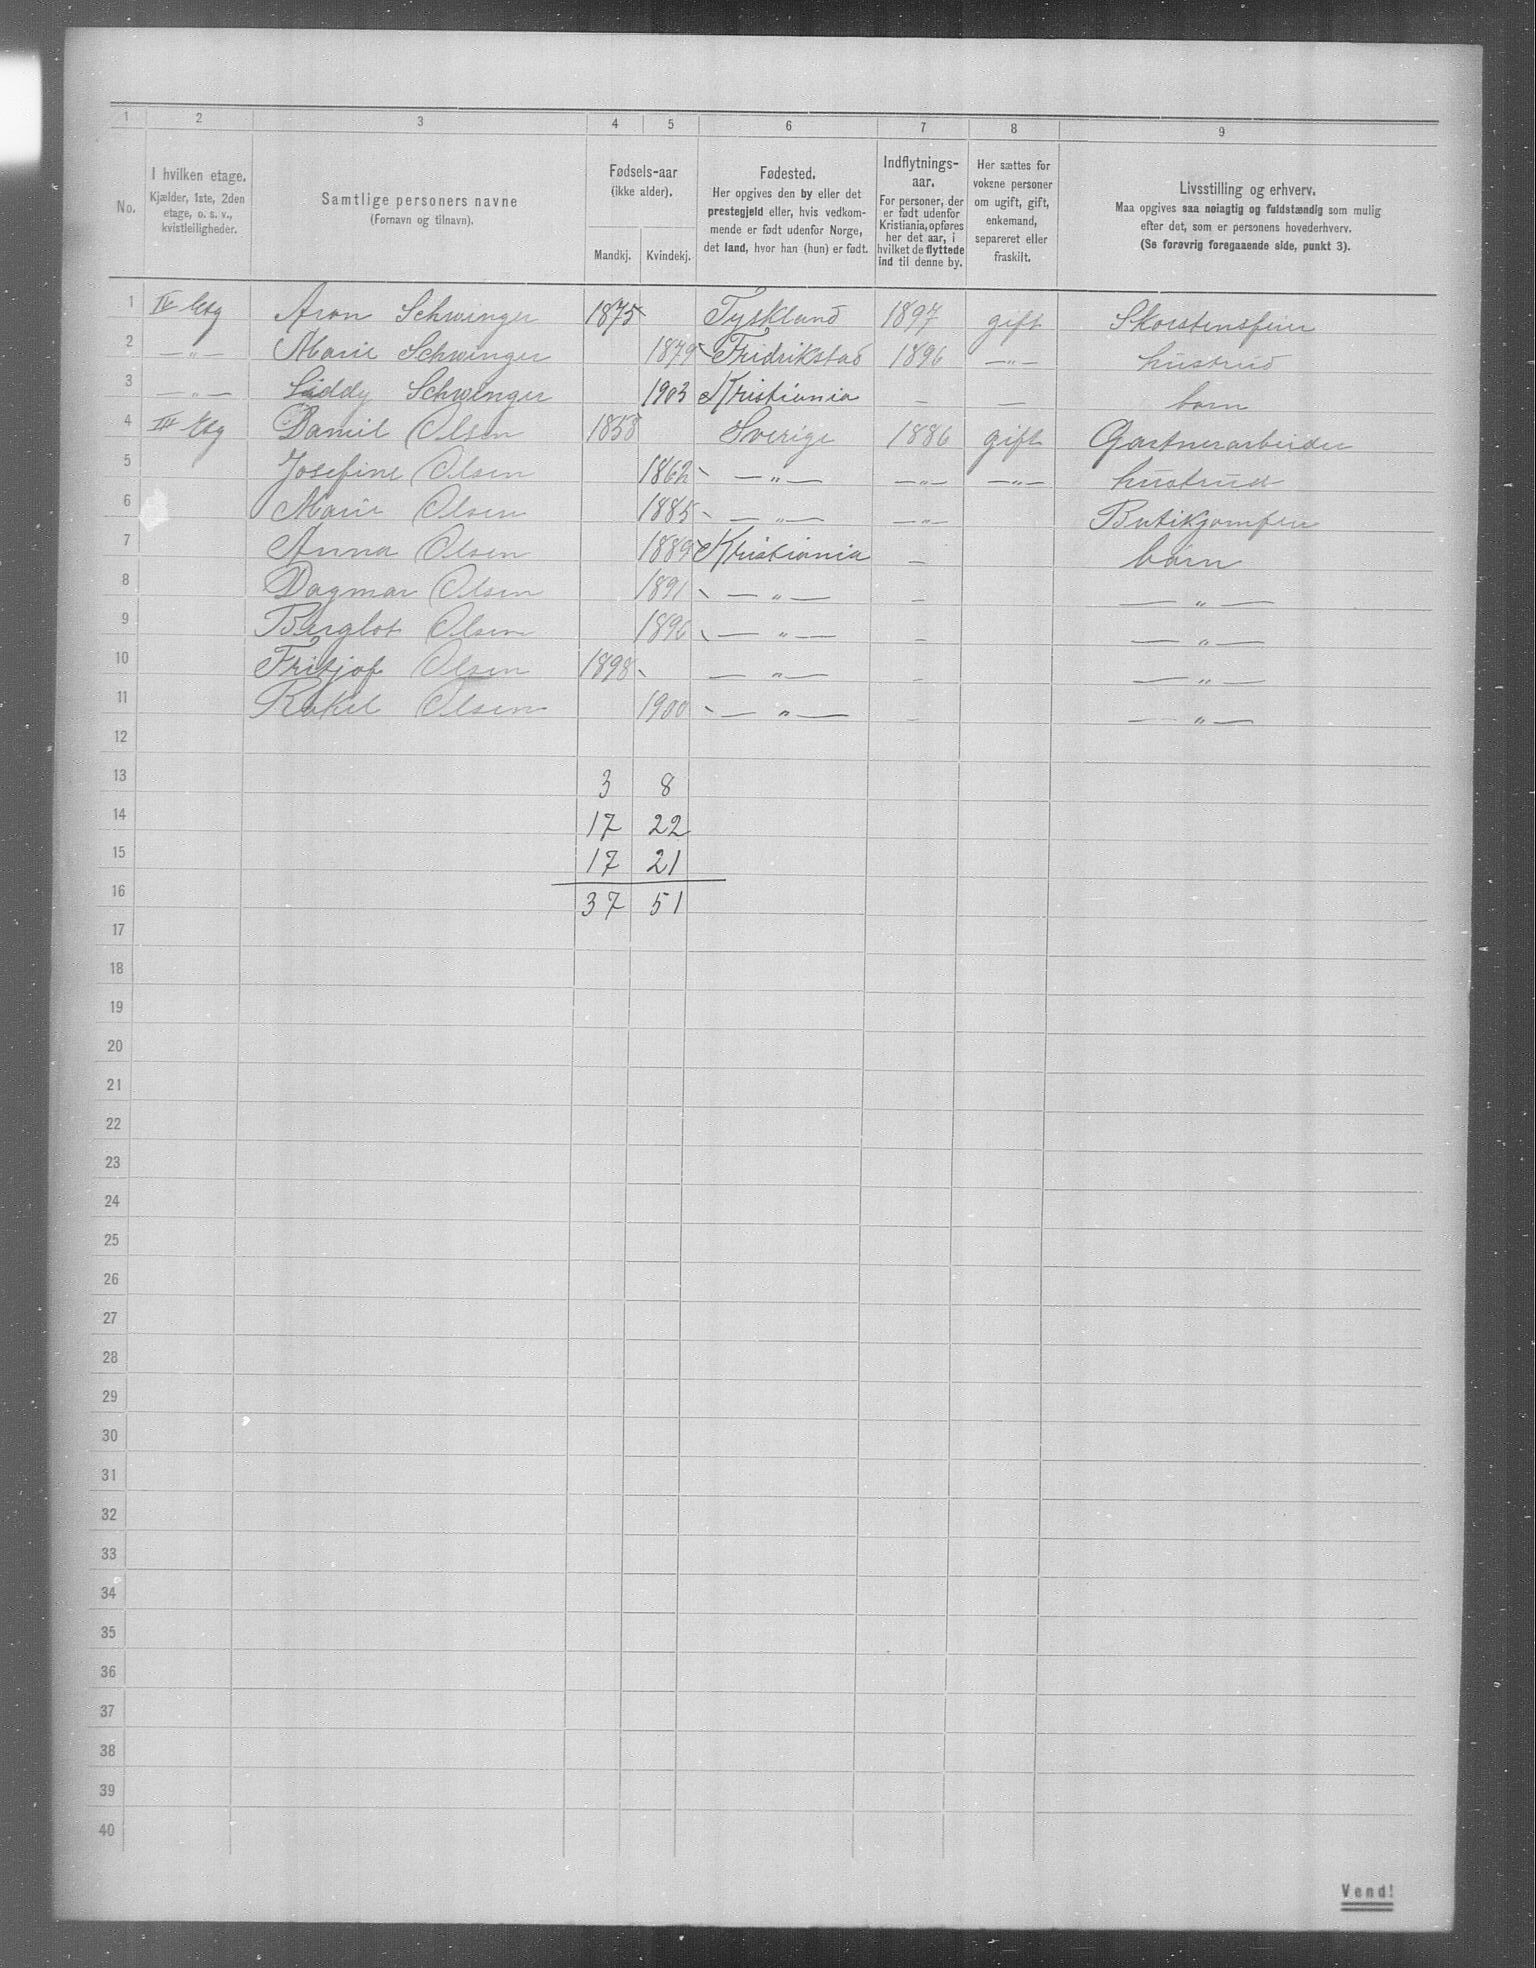 1 2 3 4 5 6 7 8 9
No.
I hvilken etage.
Kjælder, 1ste, 2den
etage, o. s. v.,
kvistleiligheder.
Samtlige personers navne
(Fornavn og tilnavn).
Fødsels-aar
(ikke alder).
Mandkj. Kvindekj.
Fødested.
Her opgives den by eller det
prestegjeld eller, hvis vedkom-
mende er født udenfor Norge,
det land, hvor han (hun) er født.
Indflytnings-
aar.
For personer, der
er født udenfor
Kristiania, opføres
her det aar, i
hvilket de flyttede
ind til denne by.
Her sættes for
voksne personer
om ugift, gift,
enkemand,
separeret eller
fraskilt.
Livsstilling og erhverv.
Maa opgives saa nøiagtig og fuldstændig som mulig
efter det, som er personens hovederhverv.
(Se forøvrig foregaaende side, punkt 3).
1 IV Etg Aron Schwinger 1875 Tyskland 1897 gift Skorstensfeier
2 —„— Marie Schwinger 1879 Fridrikstad 1896 —„— hustrud
3 —„— Liddy Schwinger 1903 Kristiania — — barn
4 III Etg Daniel Olsen 1858 Sverige 1886 gift Gartnerarbeider
5 Josefine Olsen 1862 —„— —„— —„— hustrud
6 Marie Olsen 1885 —„— —„— Butikjomfru
7 Anna Olsen 1889 Kristiania — barn
8 Dagmar Olsen 1891 —„— — —„—
9 Berglot Olsen 1896 —„— — —„—
10 Fritjof Olsen 1898 —„— — —„—
11 Rakel Olsen 1900 —„— — —„—
12
13 3 8
14 17 22
15 17 21
16 37 51
17
18
19
20
21
22
23
24
25
26
27
28
29
30
31
32
33
34
35
36
37
38
39
40
Vend!